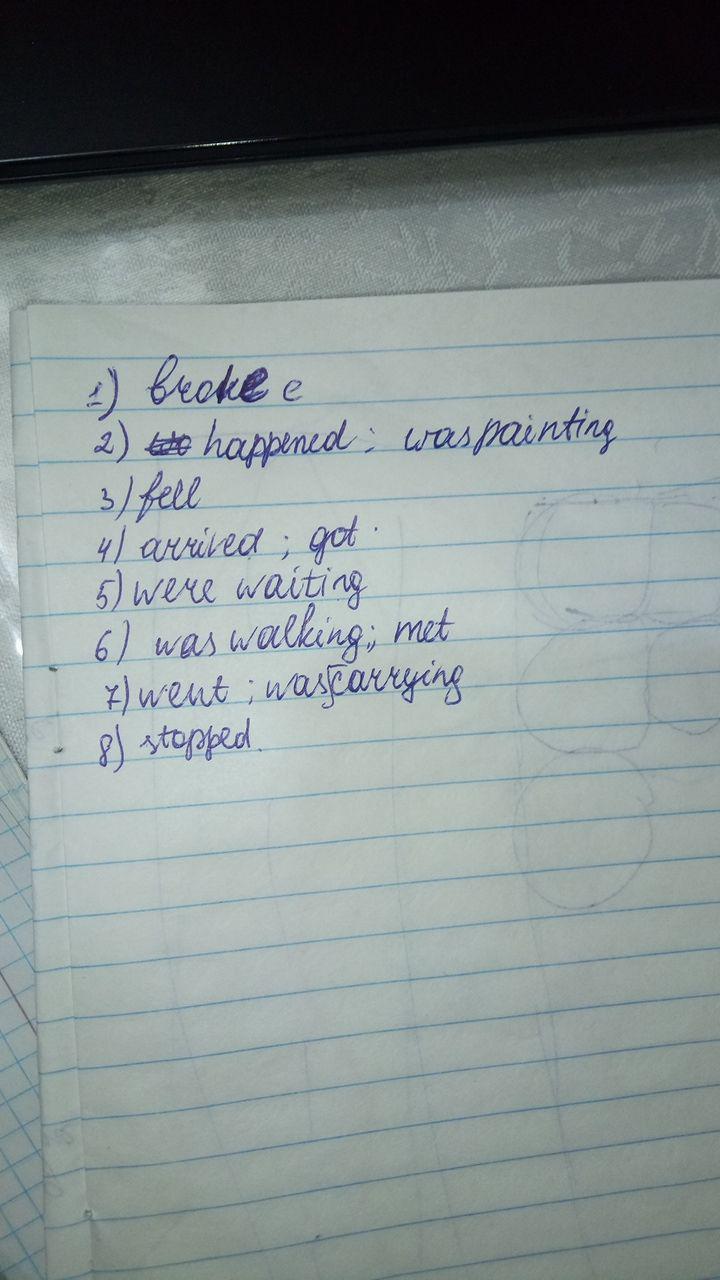 1) broke e
2) happened; was painting
3) fell
4) arrived; got.
5) were waiting
6) was walking; met
7) went; was carrying
8) stopped.